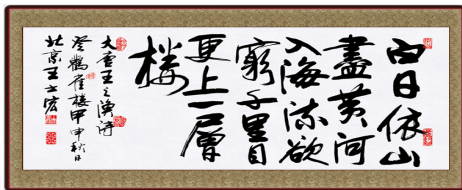 白日依山
盡黄河
入海流欲
窮千里目
更上一層
樓
大唐王之涣詩
登鸛雀樓甲申秋日
北京王文宏